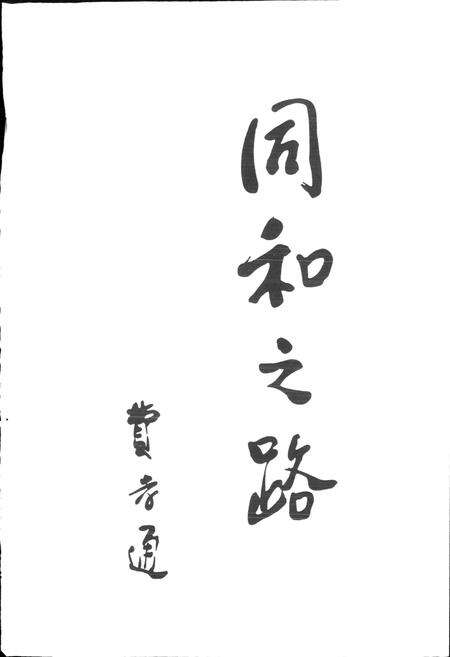 同和之路
費孝通